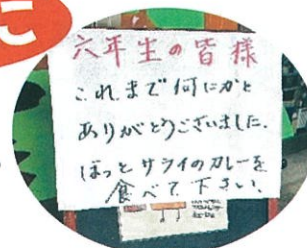 こ
六年生の皆様
これまで何にかと
ありがとうございました.
ほっとサライのカレーを
食べて下さい.